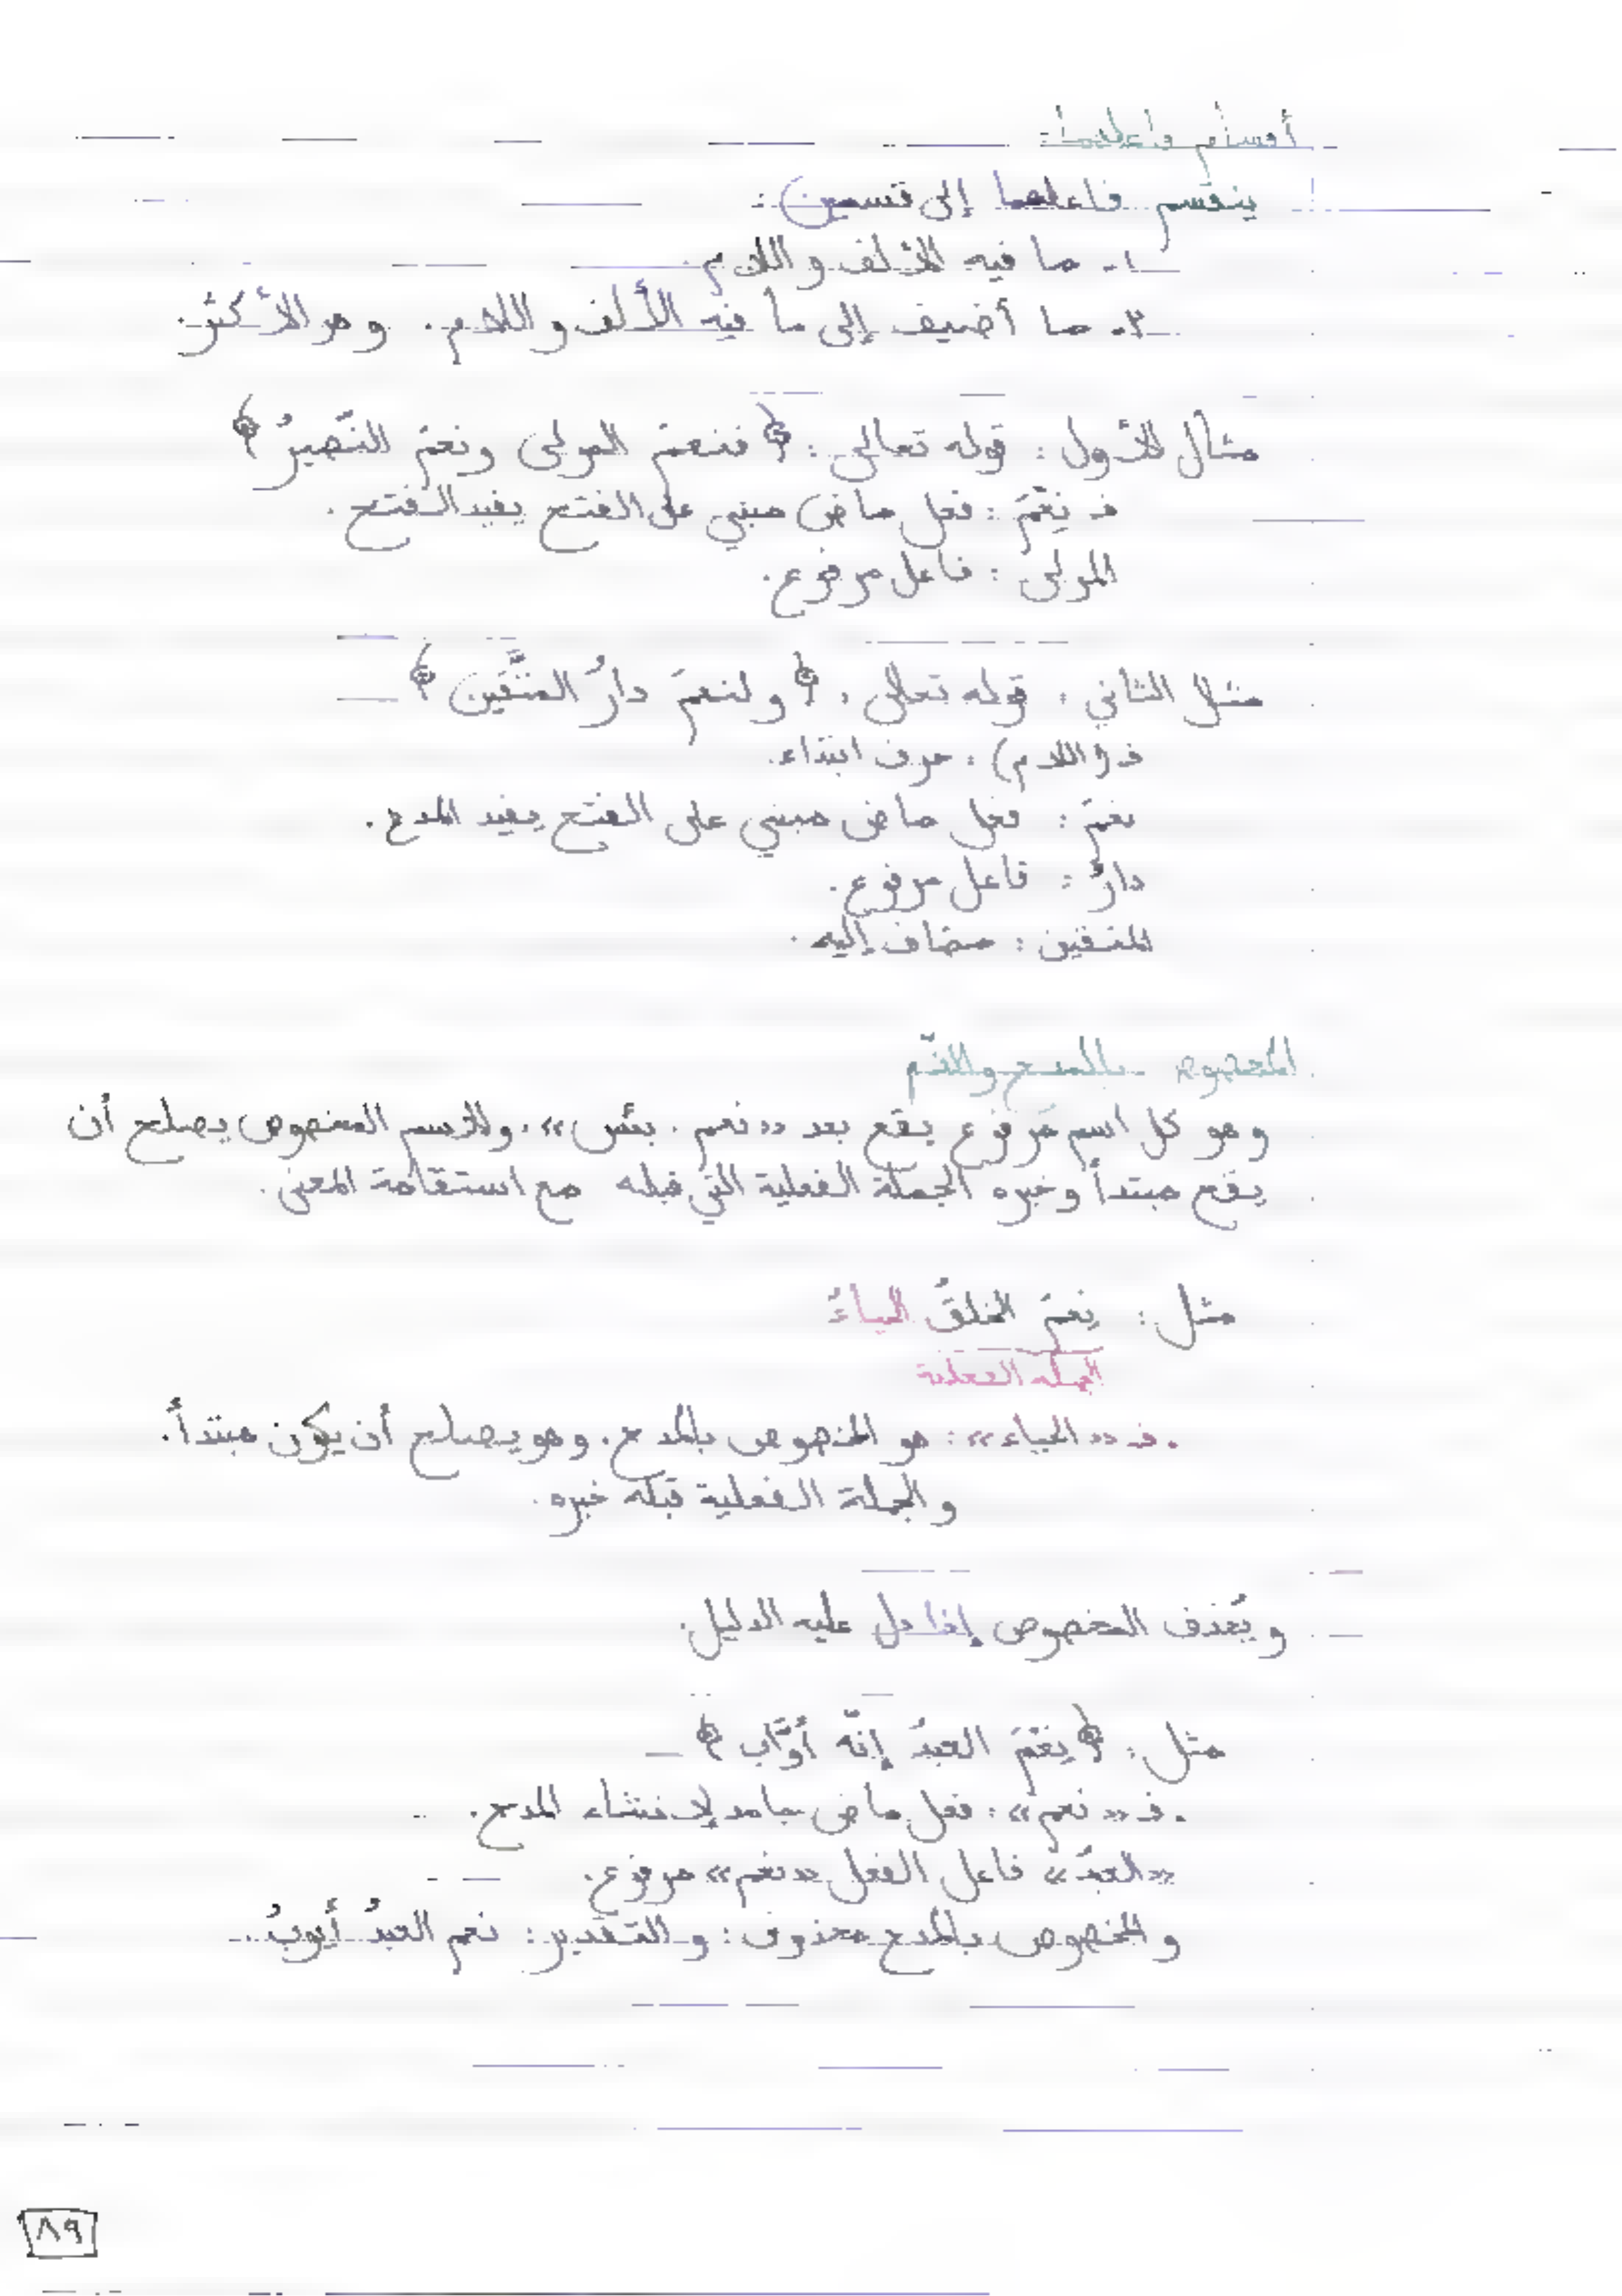 أقسام فاعلهما:
ينقسم فاعلهما إلى قسمين:
١- ما فيه الألف واللام.
٢- ما أضيف إلى ما فيه الألف واللام. وهو الأكثر.
مثال الأول: قوله تعالى: ﴿فنعمَ المولى ونعمَ النَّصيرُ﴾
فـ نِعْمَ: فعل ماض مبني على الفتح يفيد الفتح.
المولى: فاعل مرفوع.
مثال الثاني: قوله تعالى: ﴿ولنعمَ دارُ المتَّقين﴾
فـ (اللام): حرف ابتداء.
نعمَ: فعل ماض مبني على الفتح يفيد المدح.
دارُ: فاعل مرفوع.
المتقين: مضاف إليه.
المخصوص بالمدح والذّم
وهو كل اسم مرفوع يقع بعد «نعم، بئس»، والاسم المخصوص يصلح أن
يقع مبتدأ وخبره الجملة الفعلية التي قبله مع استقامة المعنى.
مثل: نِعمَ الخلقُ الحياءُ
الجملة الفعلية
. فـ «الحياء»: هو المخصوص بالمدح. وهو يصلح أن يكون مبتدأ.
والجملة الفعلية قبله خبره.
ويُحذف المخصوص إذا دل عليه الدليل.
مثل: ﴿نِعْمَ العبدُ إنّه أوَّاب﴾
. فـ «نعم»: فعل ماض جامد لإنشاء المدح.
«العبدُ» فاعل الفعل «نعم» مرفوع.
والمخصوص بالمدح محذوف: والتقدير: نعم العبدُ أيوبُ.
٨٩